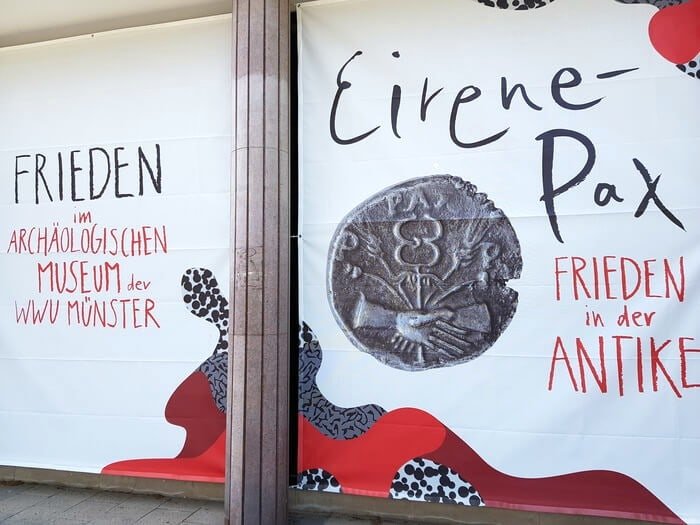 FRIEDEN
im
ARCHÄOLOGISCHEN
MUSEUM der
WWU MÜNSTER
Eirene-
Pax
PAX
P P
FRIEDEN
in der
ANTIKE